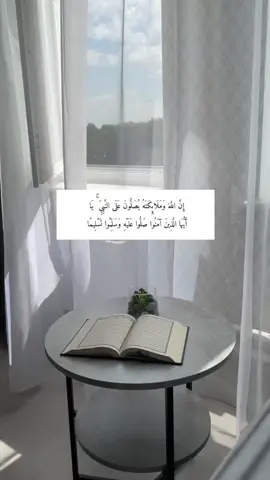 إِنَّ اللَّهَ وَمَلَائِكَتَهُ يُصَلُّونَ عَلَى النَّبِيِّ ۚ يَا
أَيُّهَا الَّذِينَ آمَنُوا صَلُّوا عَلَيْهِ وَسَلِّمُوا تَسْلِيمًا